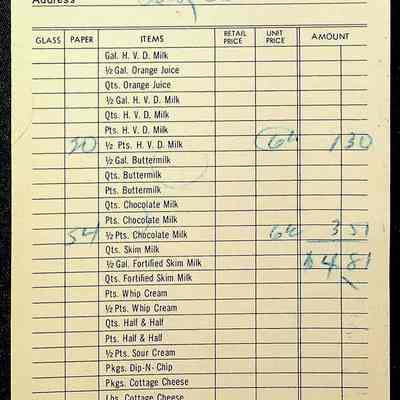 Address
GLASS PAPER ITEMS RETAIL PRICE UNIT PRICE AMOUNT
Gal. H. V. D. Milk
½ Gal. Orange Juice
Qts. Orange Juice
½ Gal. H. V. D. Milk
Qts. H. V. D. Milk
Pts. H. V. D. Milk
20 ½ Pts. H. V. D. Milk 1 30
½ Gal. Buttermilk
Qts. Buttermilk
Pts. Buttermilk
Qts. Chocolate Milk
Pts. Chocolate Milk
54 ½ Pts. Chocolate Milk 3 51
Qts. Skim Milk
½ Gal. Fortified Skim Milk $4.81
Qts. Fortified Skim Milk
Pts. Whip Cream
½ Pts. Whip Cream
Qts. Half & Half
Pts. Half & Half
½ Pts. Sour Cream
Pkgs. Dip-N- Chip
Pkgs. Cottage Cheese
Lbs. Cottage Cheese